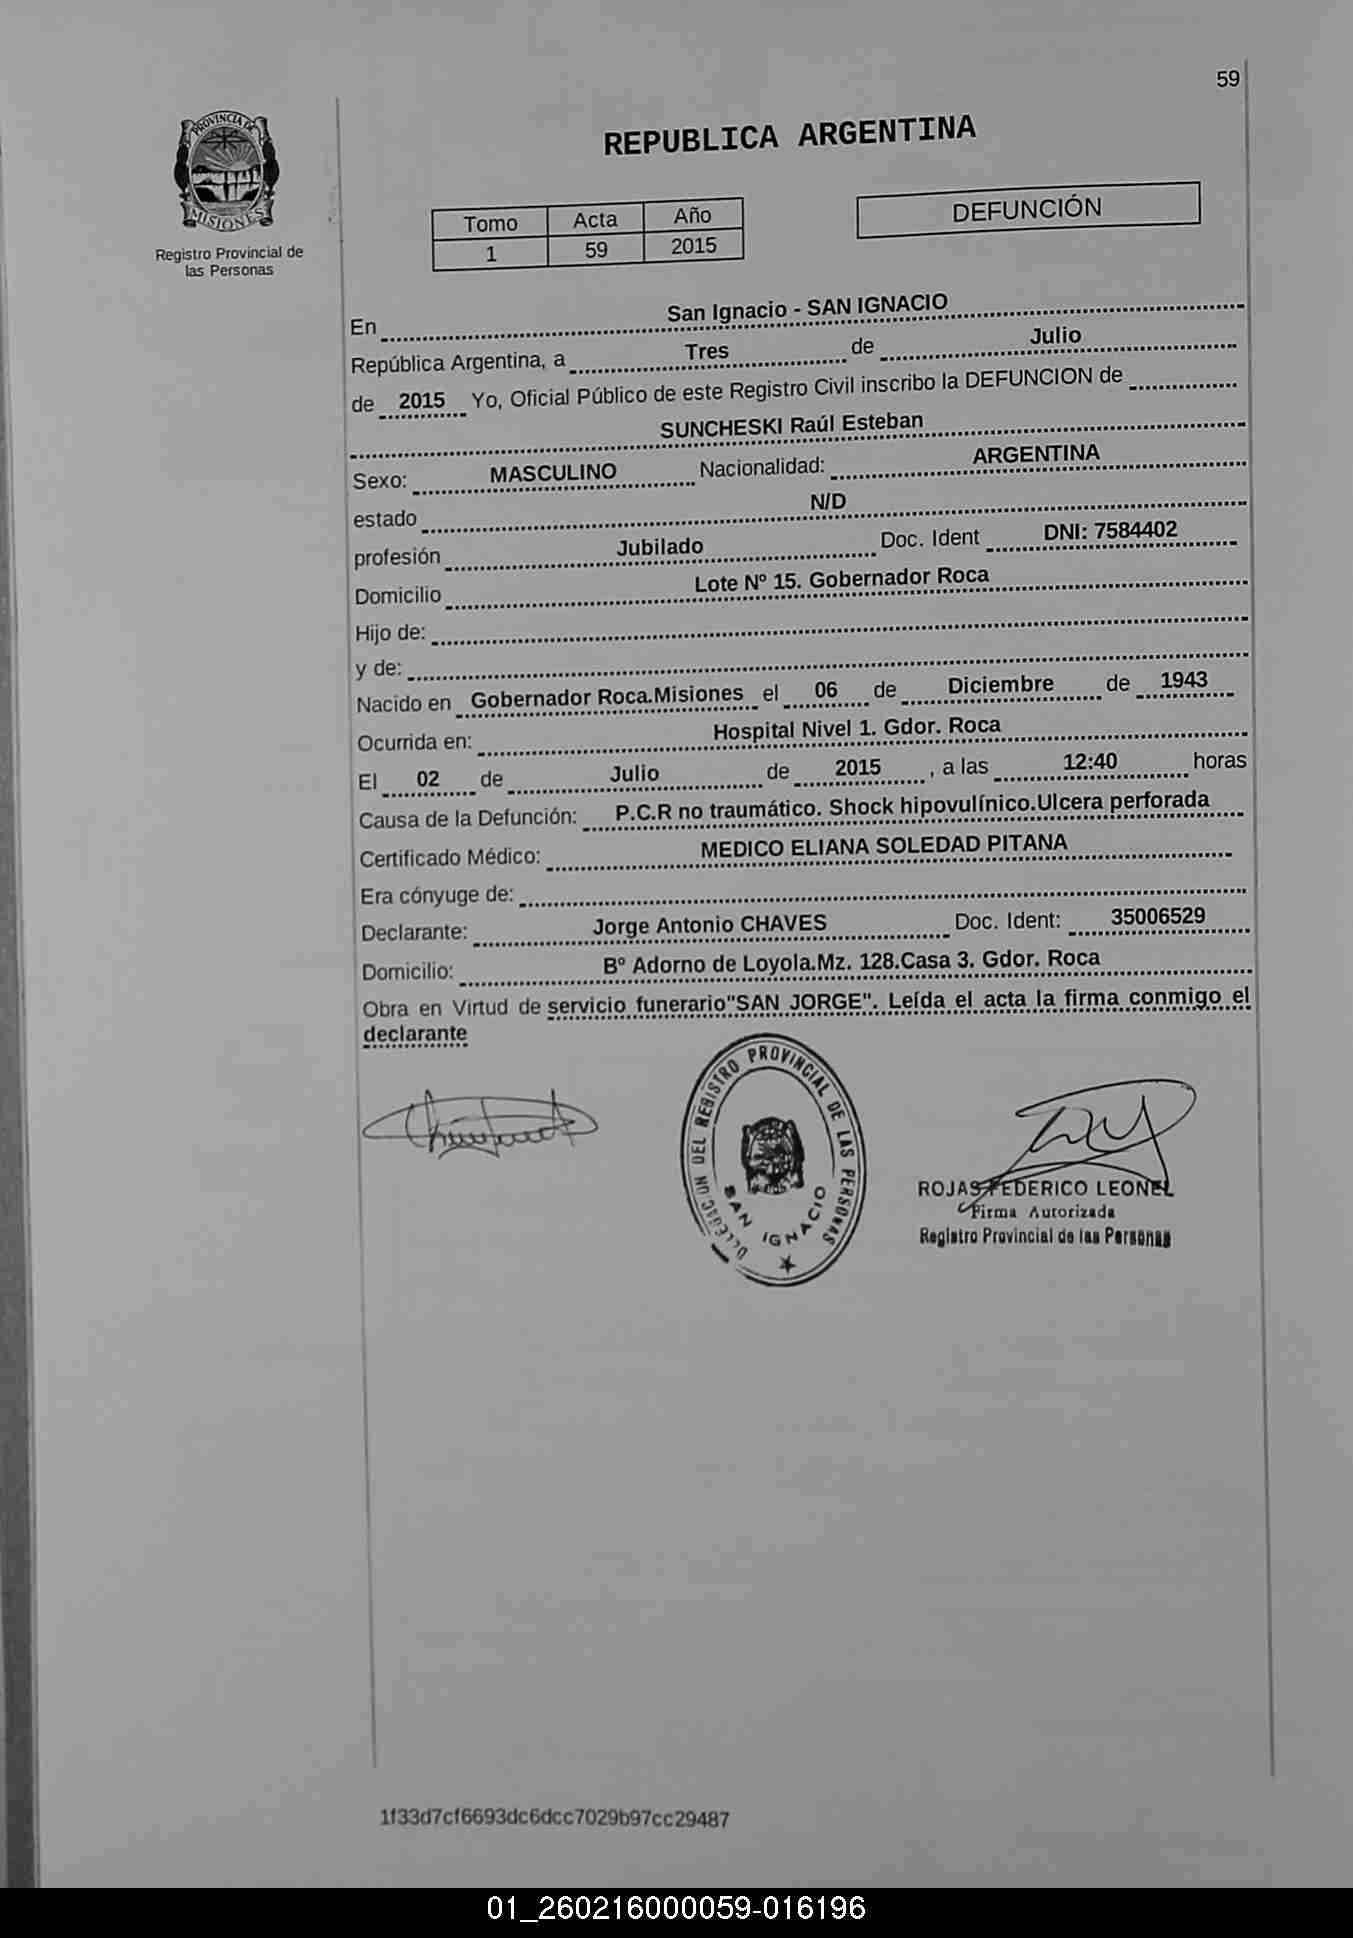 59
PROVINCIA DE
MISIONES
Registro Provincial de
las Personas
REPUBLICA ARGENTINA
Tomo Acta Año
1 59 2015
DEFUNCIÓN
En San Ignacio - SAN IGNACIO
República Argentina, a Tres de Julio
de 2015 Yo, Oficial Público de este Registro Civil inscribo la DEFUNCION de
SUNCHESKI Raúl Esteban
Sexo: MASCULINO Nacionalidad: ARGENTINA
estado N/D
profesión Jubilado Doc. Ident DNI: 7584402
Domicilio Lote Nº 15. Gobernador Roca
Hijo de:
y de:
Nacido en Gobernador Roca.Misiones el 06 de Diciembre de 1943
Ocurrida en: Hospital Nivel 1. Gdor. Roca
El 02 de Julio de 2015 , a las 12:40 horas
Causa de la Defunción: P.C.R no traumático. Shock hipovulínico.Ulcera perforada
Certificado Médico: MEDICO ELIANA SOLEDAD PITANA
Era cónyuge de:
Declarante: Jorge Antonio CHAVES Doc. Ident: 35006529
Domicilio: Bº Adorno de Loyola.Mz. 128.Casa 3. Gdor. Roca
Obra en Virtud de servicio funerario"SAN JORGE". Leída el acta la firma conmigo el
declarante
DEL REGISTRO PROVINCIAL DE LAS PERSONAS
SAN IGNACIO
ROJAS FEDERICO LEONEL
Firma Autorizada
Registro Provincial de las Personas
1f33d7cf6693dc6dcc7029b97cc29487
01_260216000059-016196